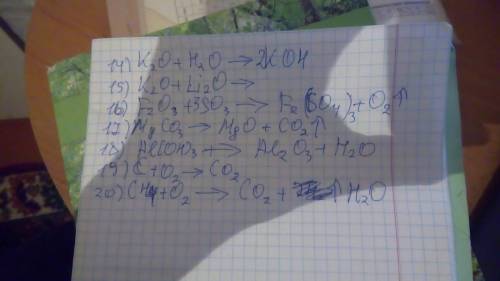 14) K₂O + H₂O → 2KOH
15) K₂O + Li₂O →
16) F₂O₃ + 3SO₃ → F₂(SO₄)₃ + O₂↑
17) MgCO₃ → MgO + CO₂↑
18) Al(OH)₃ → Al₂O₃ + H₂O
19) C + O₂ → CO₂
20) CH₄ + O₂ → CO₂ + ↑ H₂O